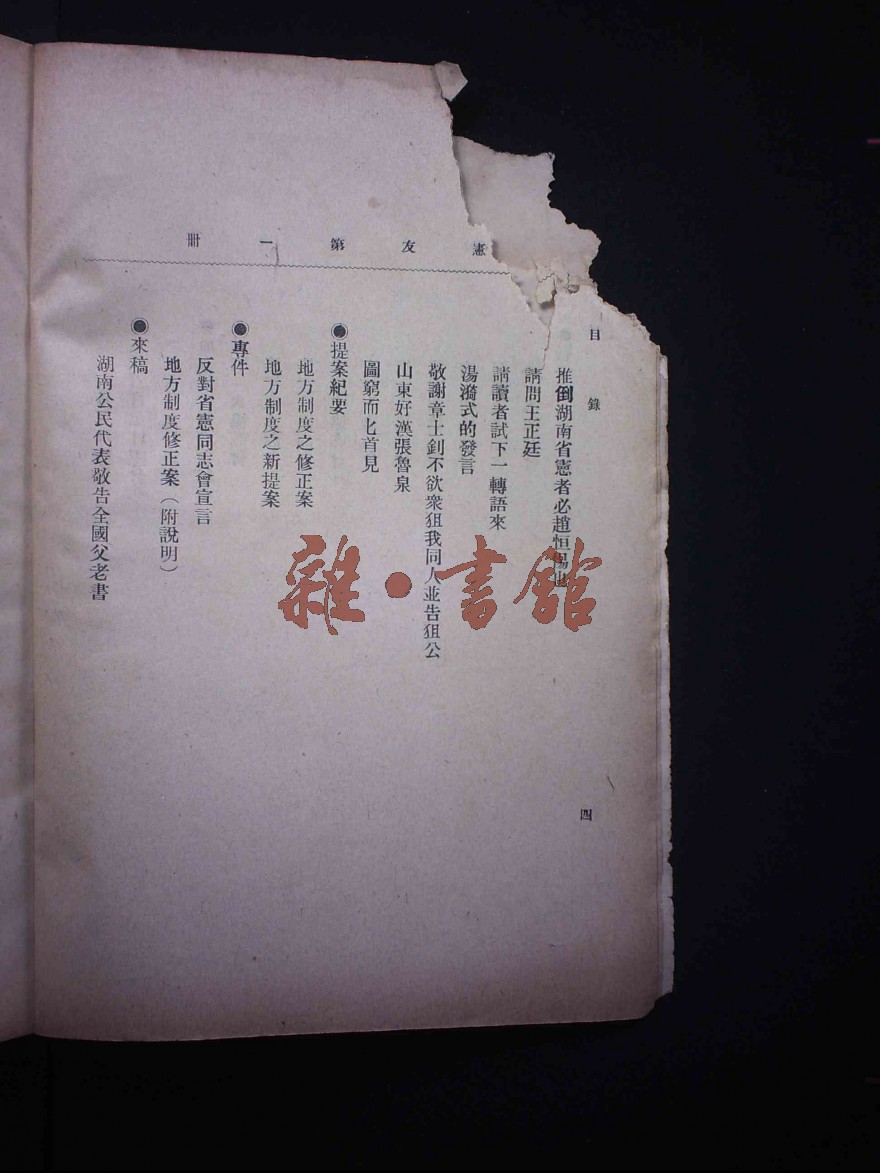 憲友第一冊
目錄
推倒湖南省憲者必趙恒惕也
請問王正廷
請讀者試下一轉語來
湯漪式的發言
敬謝章士釗不欲衆狙我同人並告狙公
山東好漢張魯泉
圖窮而匕首見
◉提案紀要
地方制度之修正案
地方制度之新提案
◉專件
反對省憲同志會宣言
地方制度修正案(附說明)
◉來稿
湖南公民代表敬告全國父老書
四
雜·書館